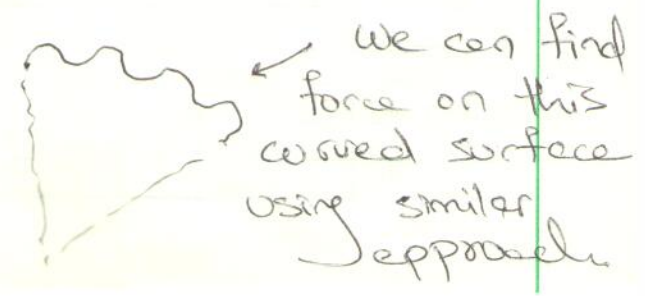 We can find
force on this
curved surface
using similar
approach.